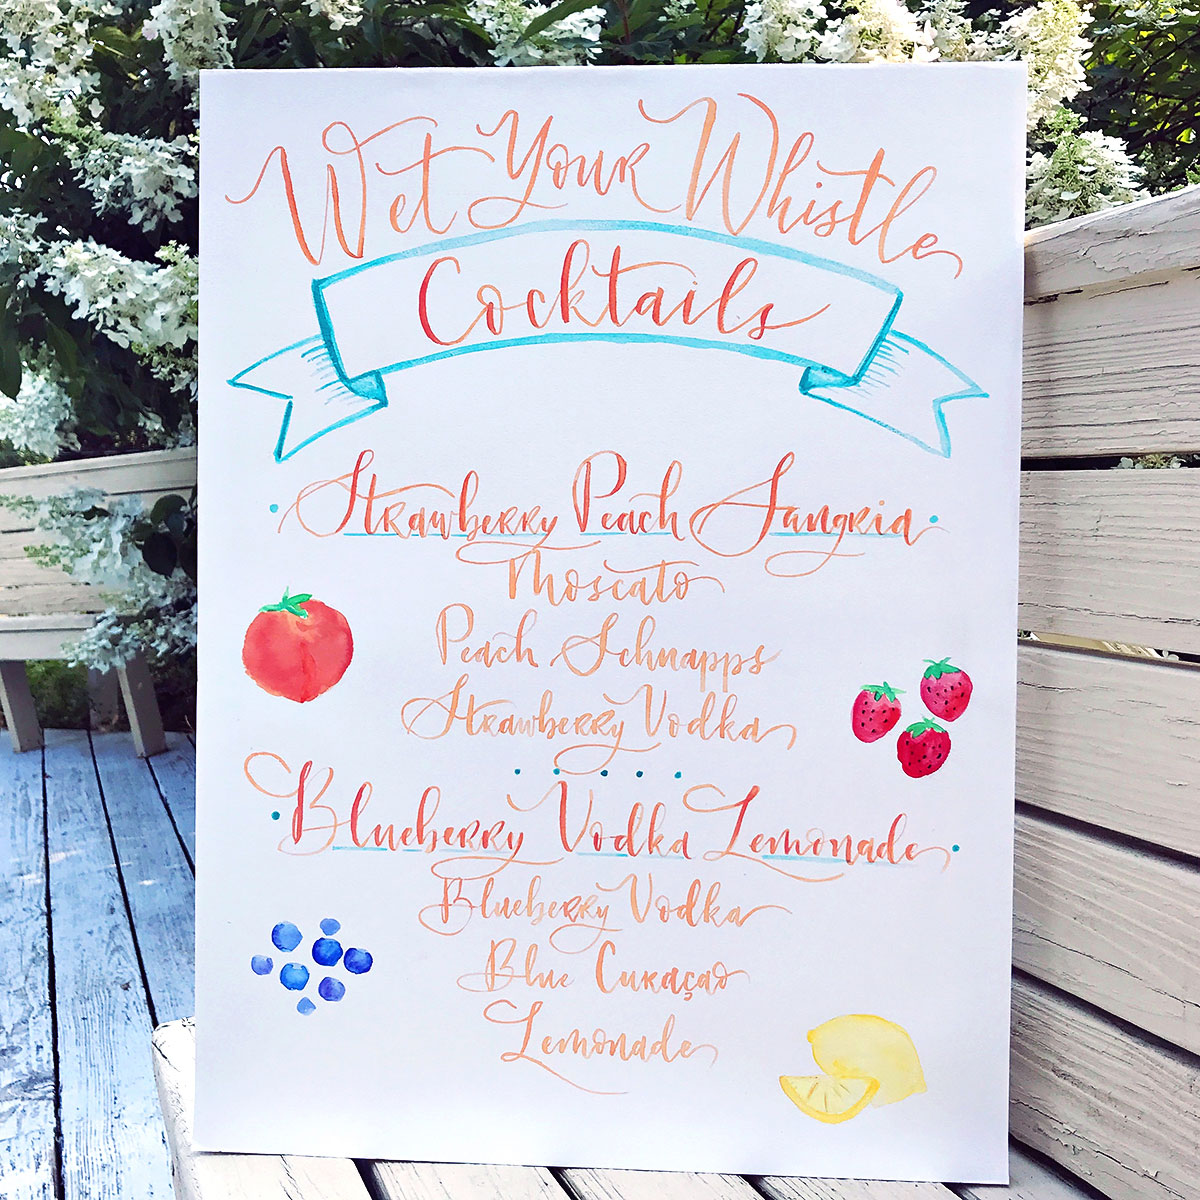 Wet Your Whistle
Cocktails
Strawberry Peach Sangria
Moscato
Peach Schnapps
Strawberry Vodka
Blueberry Vodka Lemonade
Blueberry Vodka
Blue Curaçao
Lemonade